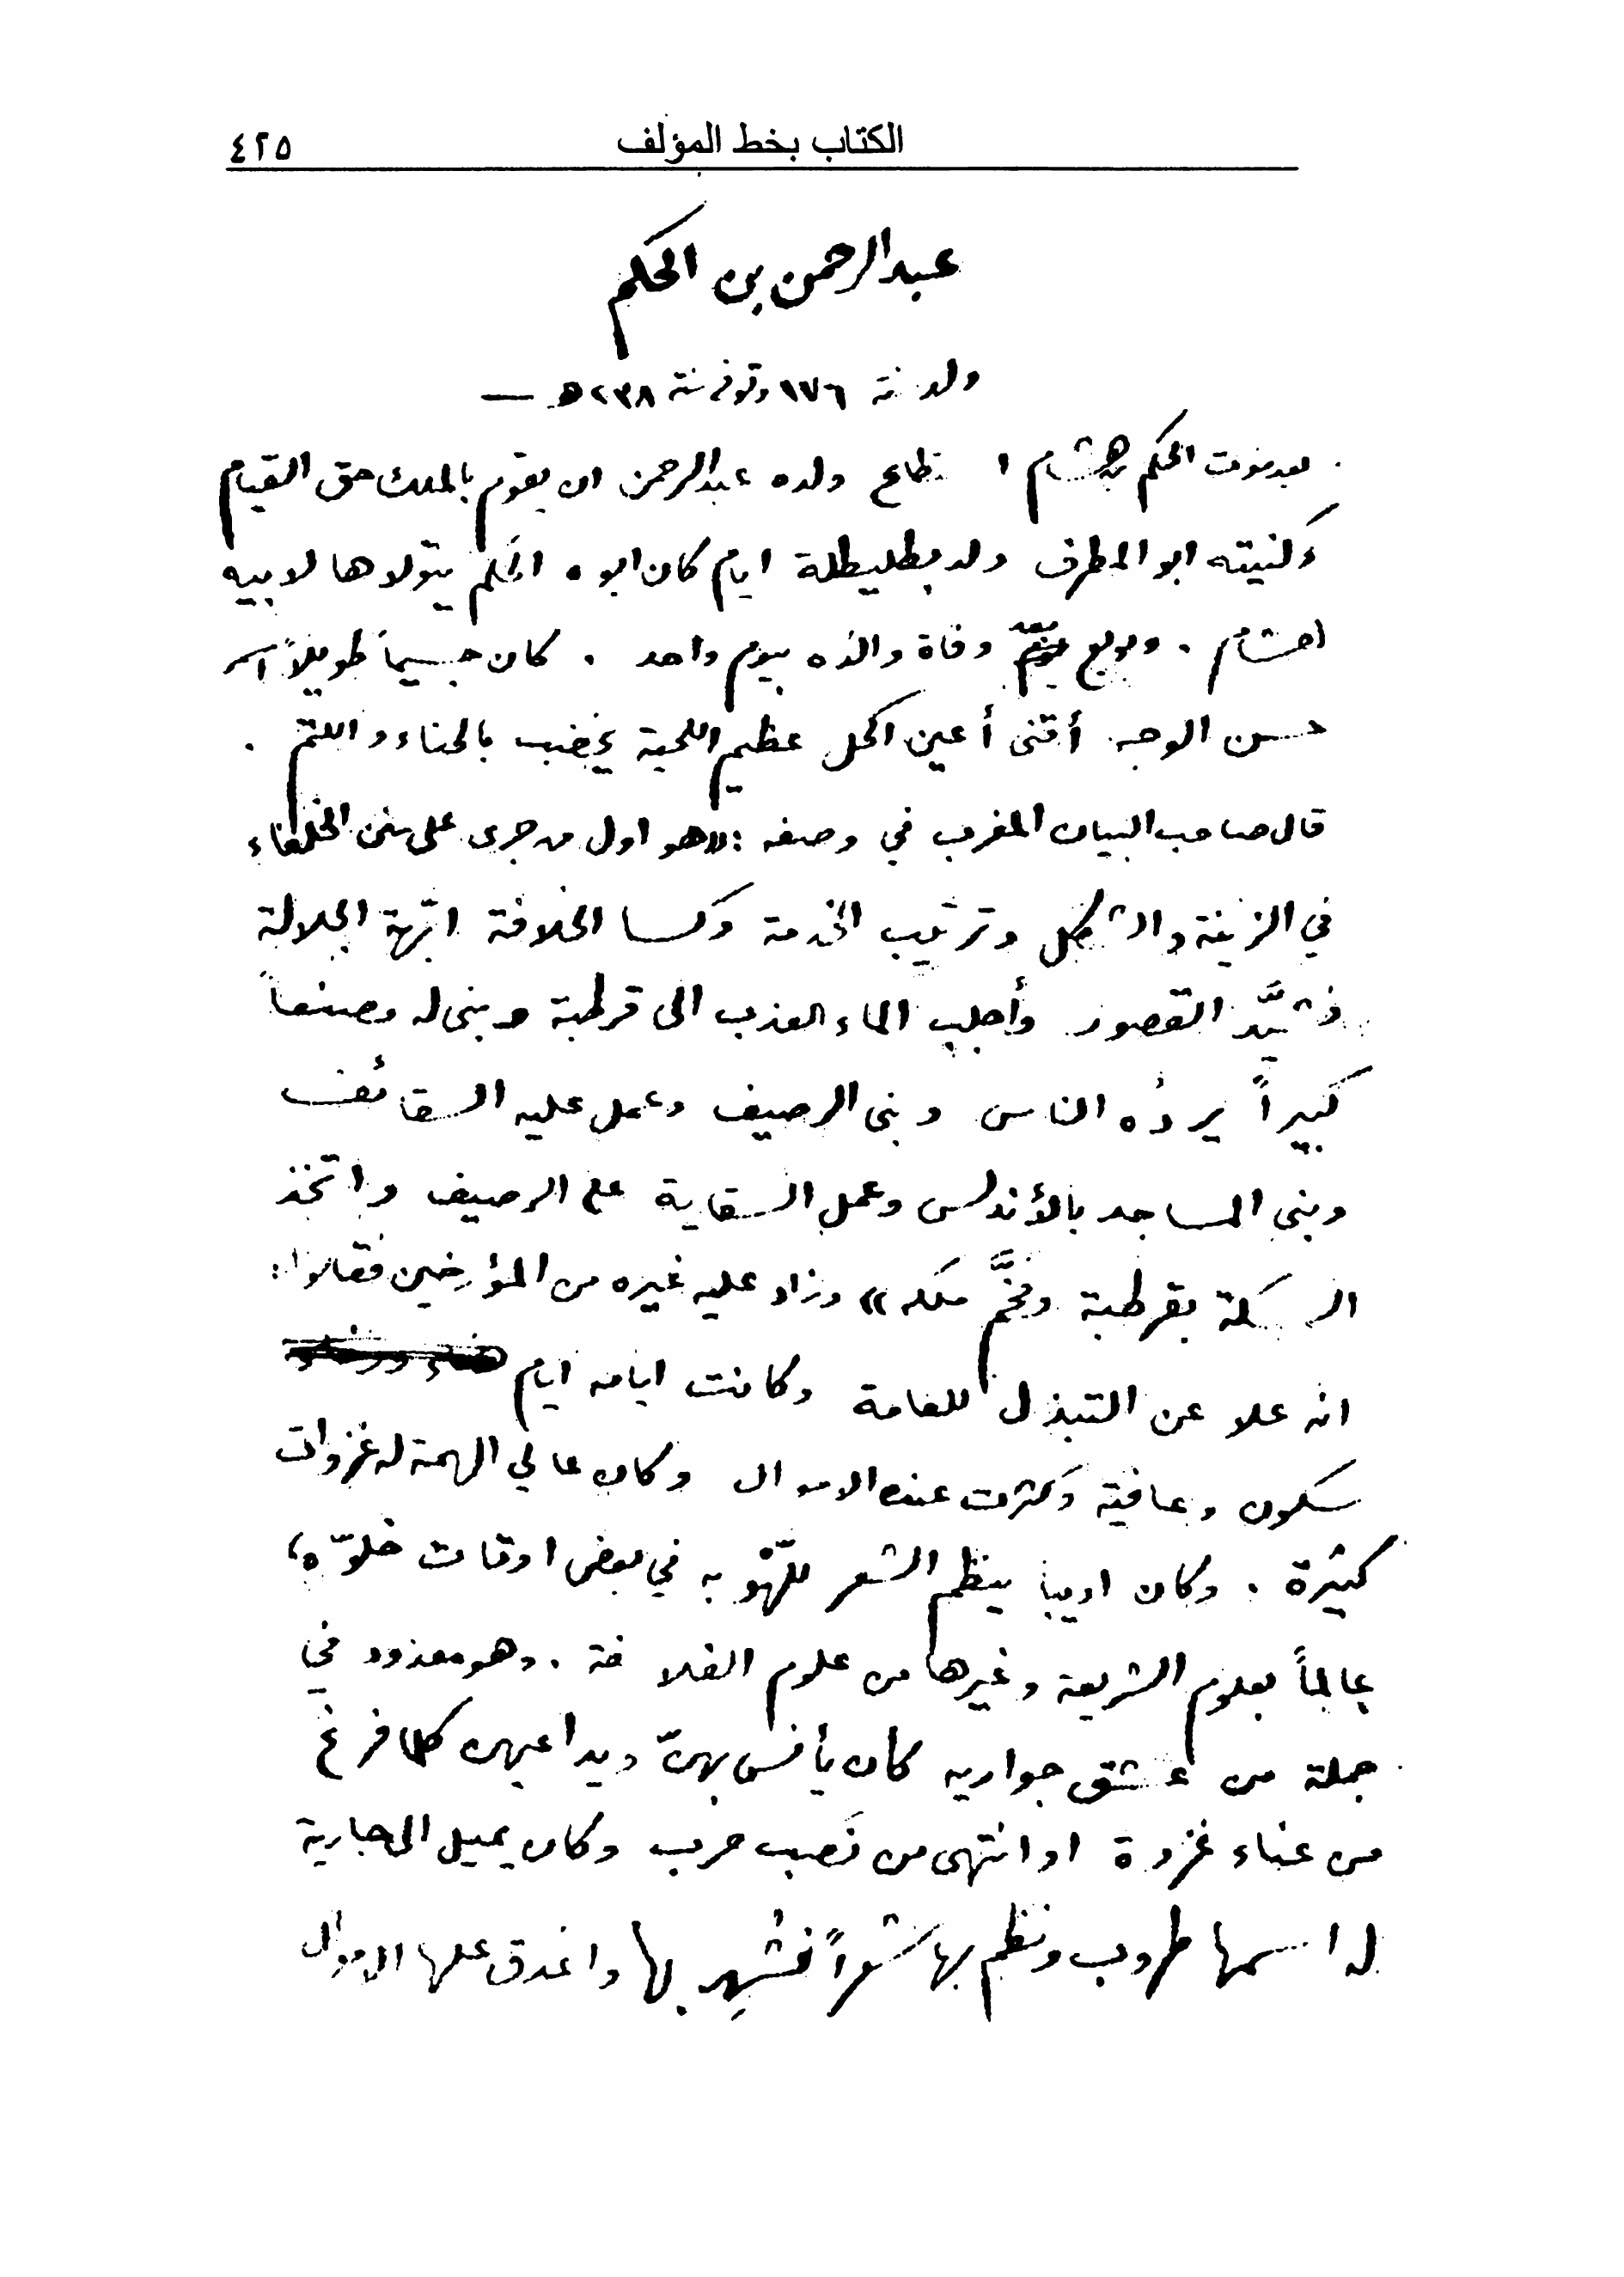 الكتاب بخط المؤلف ٤٢٥
عبد الرحمن بن الحكم
ولد سنة ١٧٦ وتوفي سنة ٢٣٨ هـ —
بعد موت الحكم بن هشام استطاع ولده عبد الرحمن ان يقوم بالملك حق القيام
وكنيته ابو المطرف ولد بطليطلة ايام كان ابوه الحكم يتولاها لابيه
هشام . وبويع بعد وفاة والده بيوم واحد . كان جسيماً طويلاً اسمر
حسن الوجه أقنى أعين اكحل عظيم اللحية يخضب بالحناء والكتم .
قال صاحب البيان المغرب في وصفه : «هو اول من جرى على سنن الخلفاء
في الزينة والشكل وترتيب الخدمة وكسا الخلافة ابّهة الجلالة
فشيَّد القصور وأجلب الماء العذب الى قرطبة وبنى له مصنعاً
كبيراً يردُه الناس وبنى الرصيف وعمل عليه السقائف
وبنى المساجد بالأندلس وعمل السقاية على الرصيف واتخذ
السكة بقرطبة وفخَّم ملكه» وزاد عليه غيره من المؤرخين فقالوا :
انه علا عن التبذل للعامة وكانت ايامه ايام
سكون وعافية وكثرت عنده الاموال وكان عالي الهمة له غزوات
كثيرة . وكان اديبا ينظم الشعر للّهْو به في بعض اوقات خلوّه،
عالماً بعلوم الشريعة وغيرها من علوم الفلاسفة . وهو معدود في
جملة من عشق جواريه كان يأنس بهنّ ويداعبهن كلما فرغ
من عناء غزوة او انتهى من نَصب حرب وكان يميل الى جارية
له اسمها طروب ونظم بها شعراً فشُهِر بها واغدق عليها الاموال